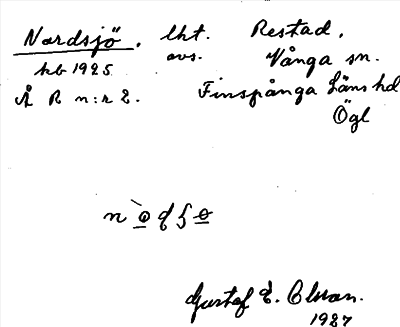 Nordsjö, lht. Restad,
hb 1925 avs. Vånga sn.
Å R n:r 2. Finspånga Läns hd
Ögl
Gustaf E. Olsson.
1927